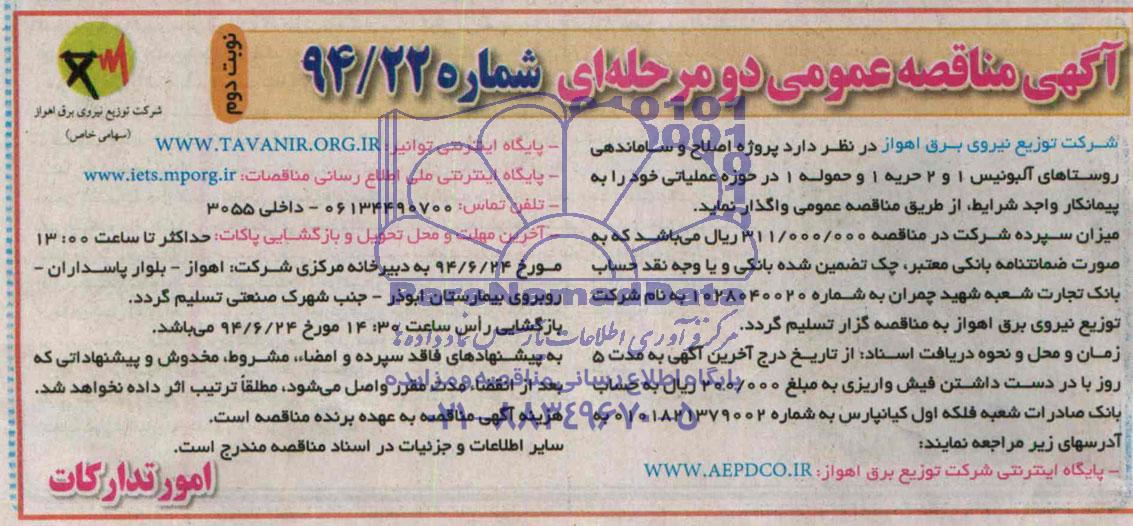 آگهی مناقصه عمومی دو مرحله‌ای شماره ۹۴/۲۲
نوبت دوم
شرکت توزیع نیروی برق اهواز
(سهامی خاص)
شرکت توزیع نیروی برق اهواز در نظر دارد پروژه اصلاح و ساماندهی
روستاهای آلبونیس ۱ و ۲ حریه ۱ و حموله ۱ در حوزه عملیاتی خود را به
پیمانکار واجد شرایط، از طریق مناقصه عمومی واگذار نماید.
میزان سپرده شرکت در مناقصه ۳۱۱/۰۰۰/۰۰۰ ریال می‌باشد که به
صورت ضمانتنامه بانکی معتبر، چک تضمین شده بانکی و یا وجه نقد حساب
بانک تجارت شعبه شهید چمران به شماره ۱۰۲۸۰۴۰۰۲۰ به نام شرکت
توزیع نیروی برق اهواز به مناقصه گزار تسلیم گردد.
زمان و محل و نحوه دریافت اسناد: از تاریخ درج آخرین آگهی به مدت ۵
روز با در دست داشتن فیش واریزی به مبلغ ۳۰۰/۰۰۰ ریال به حساب
بانک صادرات شعبه فلکه اول کیانپارس به شماره ۰۱۰۱۸۲۱۳۷۹۰۰۲ به
آدرسهای زیر مراجعه نمایند:
- پایگاه اینترنتی شرکت توزیع برق اهواز: WWW.AEPDCO.IR
- پایگاه اینترنتی توانیر: WWW.TAVANIR.ORG.IR
- پایگاه اینترنتی ملی اطلاع رسانی مناقصات: www.iets.mporg.ir
- تلفن تماس: ۰۶۱۳۴۴۹۰۷۰۰ - داخلی ۳۰۵۵
آخرین مهلت و محل تحویل و بازگشایی پاکات: حداکثر تا ساعت ۱۳:۰۰
مورخ ۹۴/۶/۲۴ به دبیرخانه مرکزی شرکت: اهواز - بلوار پاسداران -
روبروی بیمارستان ابوذر - جنب شهرک صنعتی تسلیم گردد.
بازگشایی رأس ساعت ۱۴:۳۰ مورخ ۹۴/۶/۲۴ می‌باشد.
به پیشنهادهای فاقد سپرده و امضاء، مشروط، مخدوش و پیشنهاداتی که
بعد از انقضاء مدت مقرر واصل می‌شود، مطلقاً ترتیب اثر داده نخواهد شد.
هزینه آگهی مناقصه به عهده برنده مناقصه است.
سایر اطلاعات و جزئیات در اسناد مناقصه مندرج است.
امور تدارکات
ParsNamadData
مرکز فرآوری اطلاعات پارس نماد داده‌ها
پایگاه اطلاع رسانی مناقصه و مزایده
۰۲۱-۸۸۳۴۹۶۷۰-۵